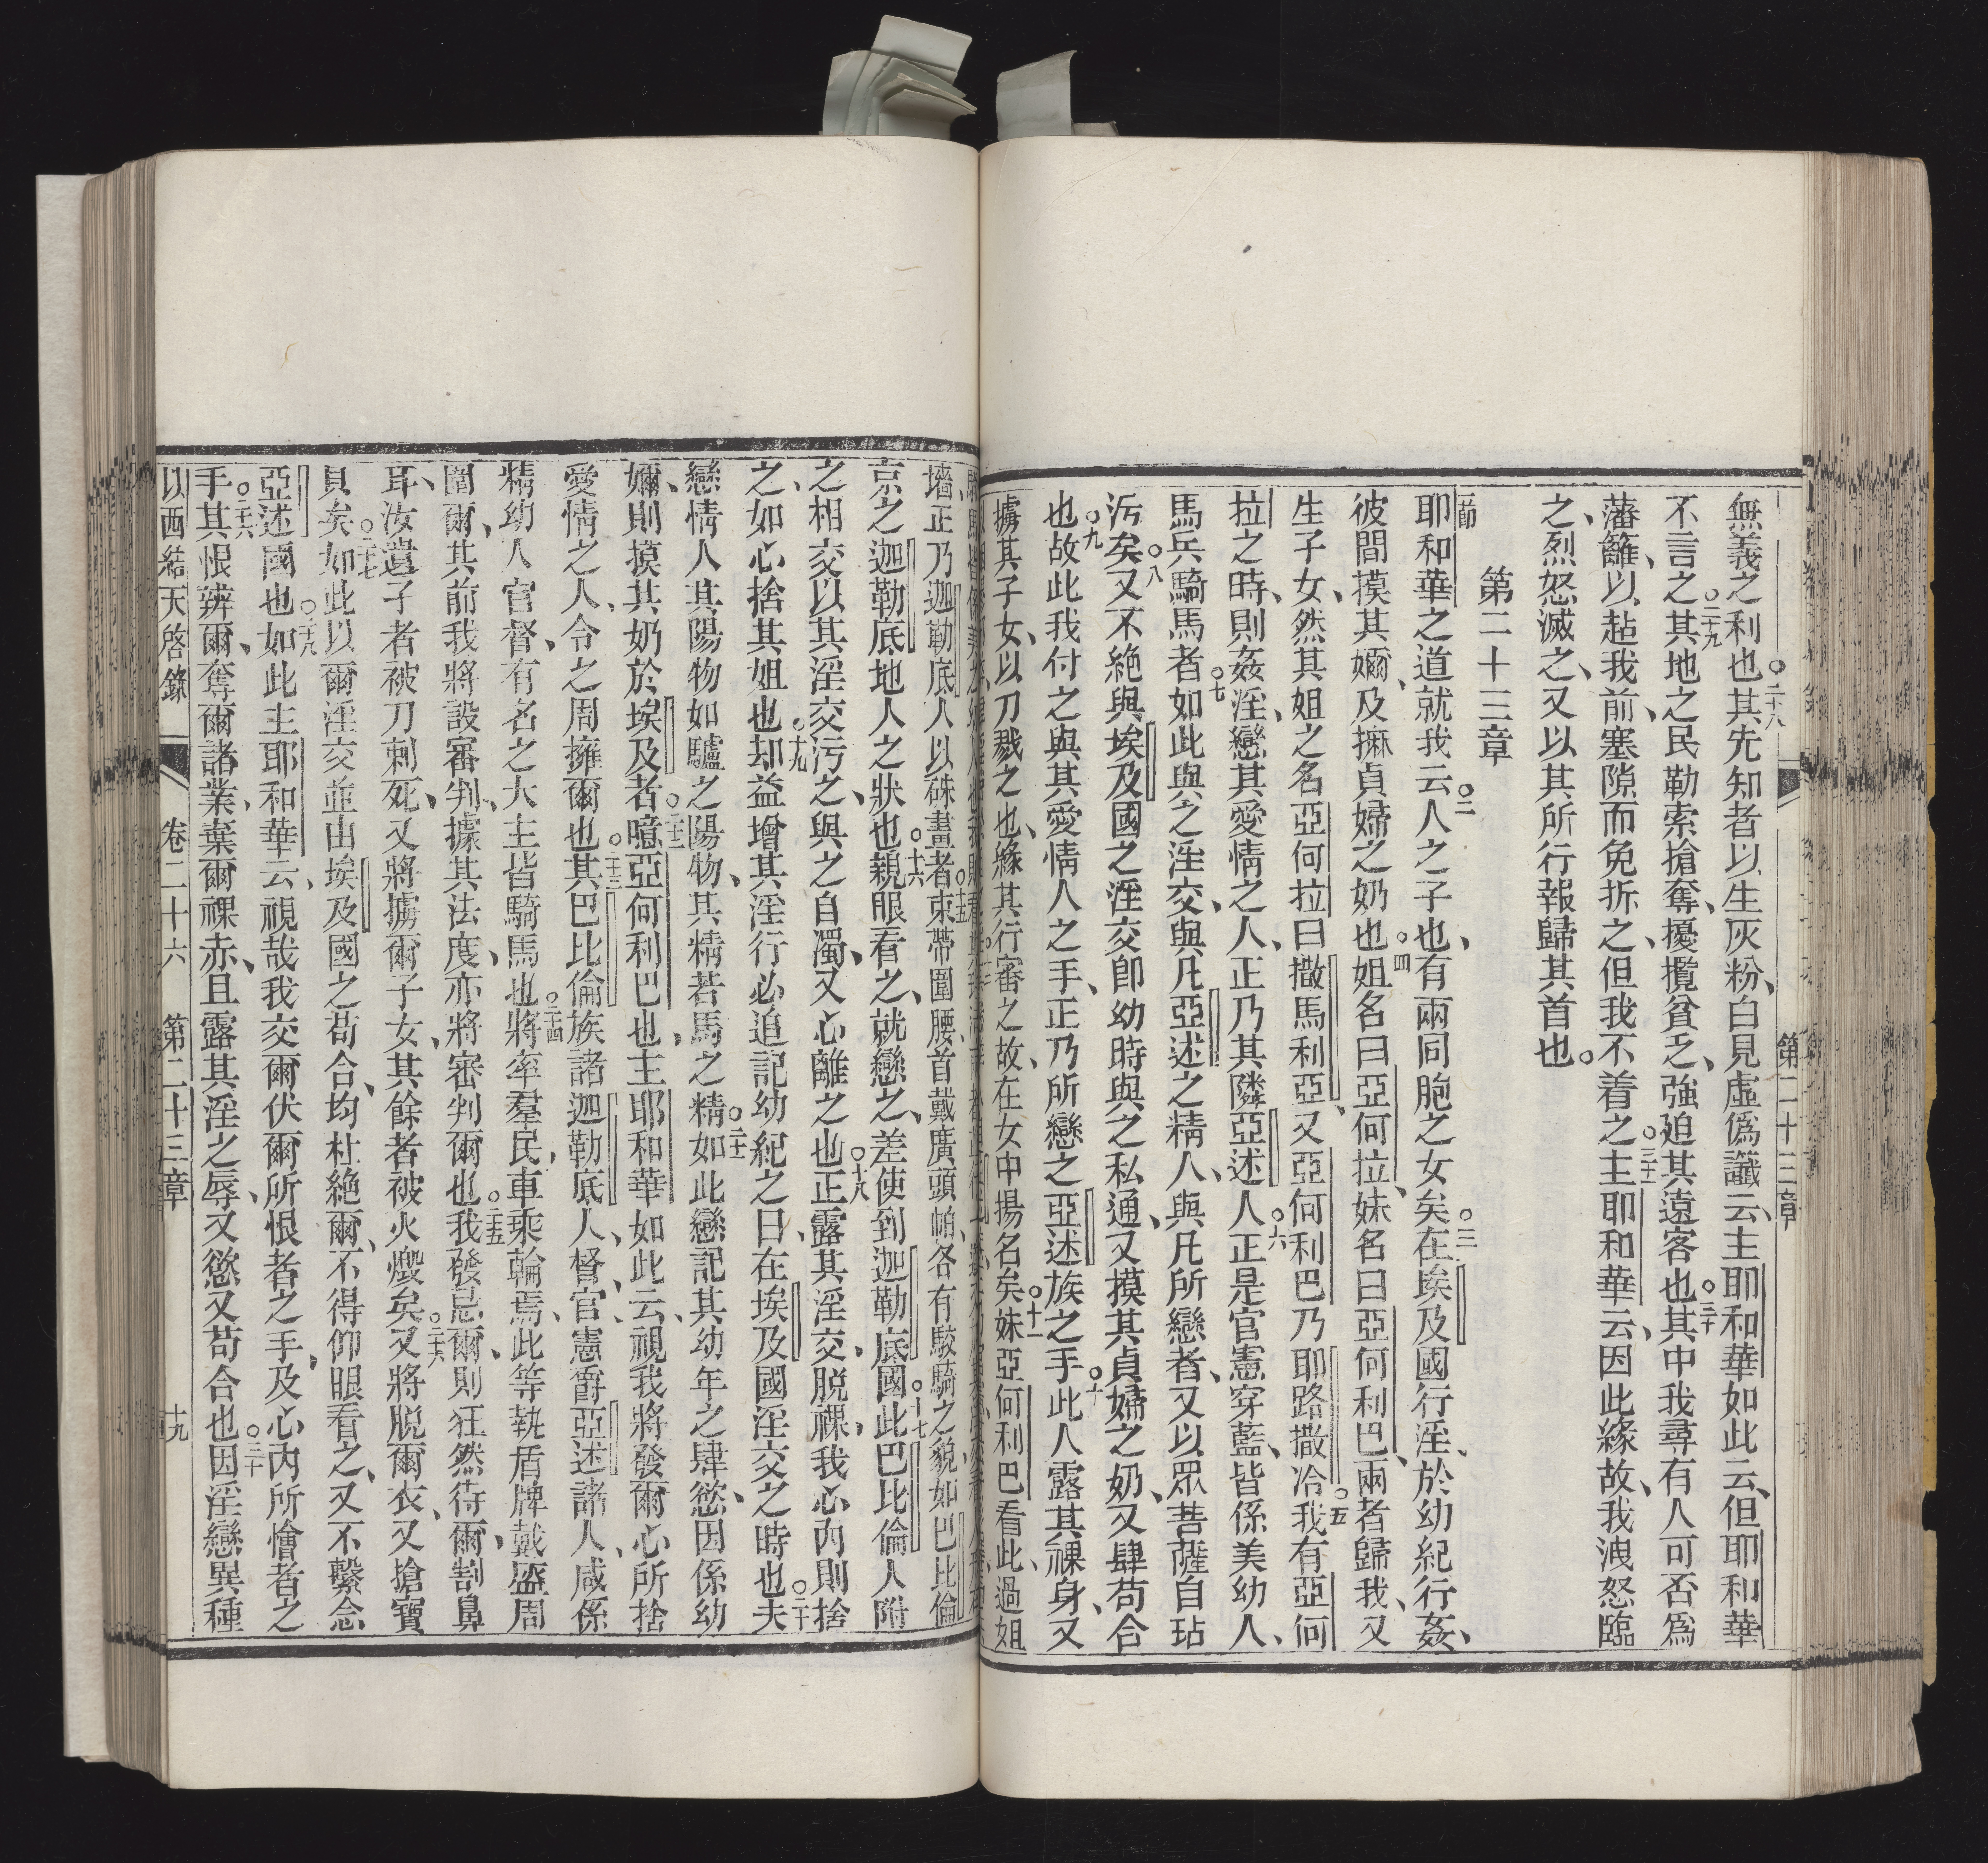 第二十三章
無義之利也。二十八其先知者以生灰粉、白見虛偽讖云、主耶和華如此云、但耶和華
不言之。二十九其地之民勒索搶奪、擾攬貧乏、強廹其遠客也。三十其中我尋有人可否爲
藩籬、以趈我前、塞隙而免折之、但我不着之。三十一主耶和華云、因此緣故、我洩怒臨
之、烈怒滅之、又以其所行報歸其首也。
第二十三章
一節耶和華之道就我云。二人之子也、有兩同胞之女矣。三在埃及國行淫、於幼紀行姦、
彼間摸其嬭、及擵貞婦之奶也。四姐名曰亞何拉、妹名曰亞何利巴、兩者歸我、又
生子女、然其姐之名亞何拉曰撒馬利亞、又亞何利巴乃耶路撒冾。五我有亞何
拉之時、則姦淫、戀其愛情之人、正乃其隣亞述人。六正是官憲穿藍、皆係美幼人、
馬兵騎馬者。七如此與之淫交、與凡亞述之精人、與凡所戀者、又以眾菩薩自玷
污矣。八又不絶與埃及國之淫交卽幼時與之私通、又摸其貞婦之奶、又肆苟合
也。九故此我付之與其愛情人之手、正乃所戀之亞述族之手。十此人露其裸身、又
擄其子女、以刀戮之也、緣其行審之故、在女中揚名矣。十一妹亞何利巴看此、過姐
墻、正乃迦勒底人以硃畫者。十五束帶圍腰、首戴廣頭帕、各有駿騎之貌、如巴比倫
京之迦勒底地人之狀也。十六親眼看之、就戀之、差使到迦勒底國。十七此巴比倫人附
之相交、以其淫交污之、與之自濁、又心離之也。十八正露其淫交、脱裸、我心內則捨
之、如心捨其姐也。十九却益增其淫行、必追記幼紀之日、在埃及國淫交之時也。二十夫
戀情人其陽物如驢之陽物、其精若馬之精。二十一如此戀記其幼年之肆慾、因係幼
嬭、則摸其奶於埃及者。二十二噫亞何利巴也、主耶和華如此云、視我將發爾心所捨
愛情之人、令之周擁爾也。二十三其巴比倫族諸迦勒底人、督官、憲爵、亞述諸人、咸係
精幼人官督、有名之大主皆騎馬也。二十四將率羣民、車乘輪焉、此等執盾牌戴盔周
圍爾、其前我將設審判、據其法度、亦將審判爾也。二十五我發忌爾、則狂然待爾、割鼻
耳、汝遺子者被刀刺死、又將擄爾子女、其餘者被火燬矣。二十六又將脱爾衣、又搶寶
貝矣。二十七如此以爾淫交並由埃及國之苟合、均杜絶爾、不得仰眼看之、又不繫念
亞述國也。二十八如此主耶和華云、視哉我交爾伏爾所恨者之手、及心內所憎者之
手。二十九其恨辨爾、奪爾諸業、棄爾裸赤、且露其淫之辱、又慾又苟合也。三十因淫戀異種
以西結天啓錄 卷二十六 第二十三章 十九